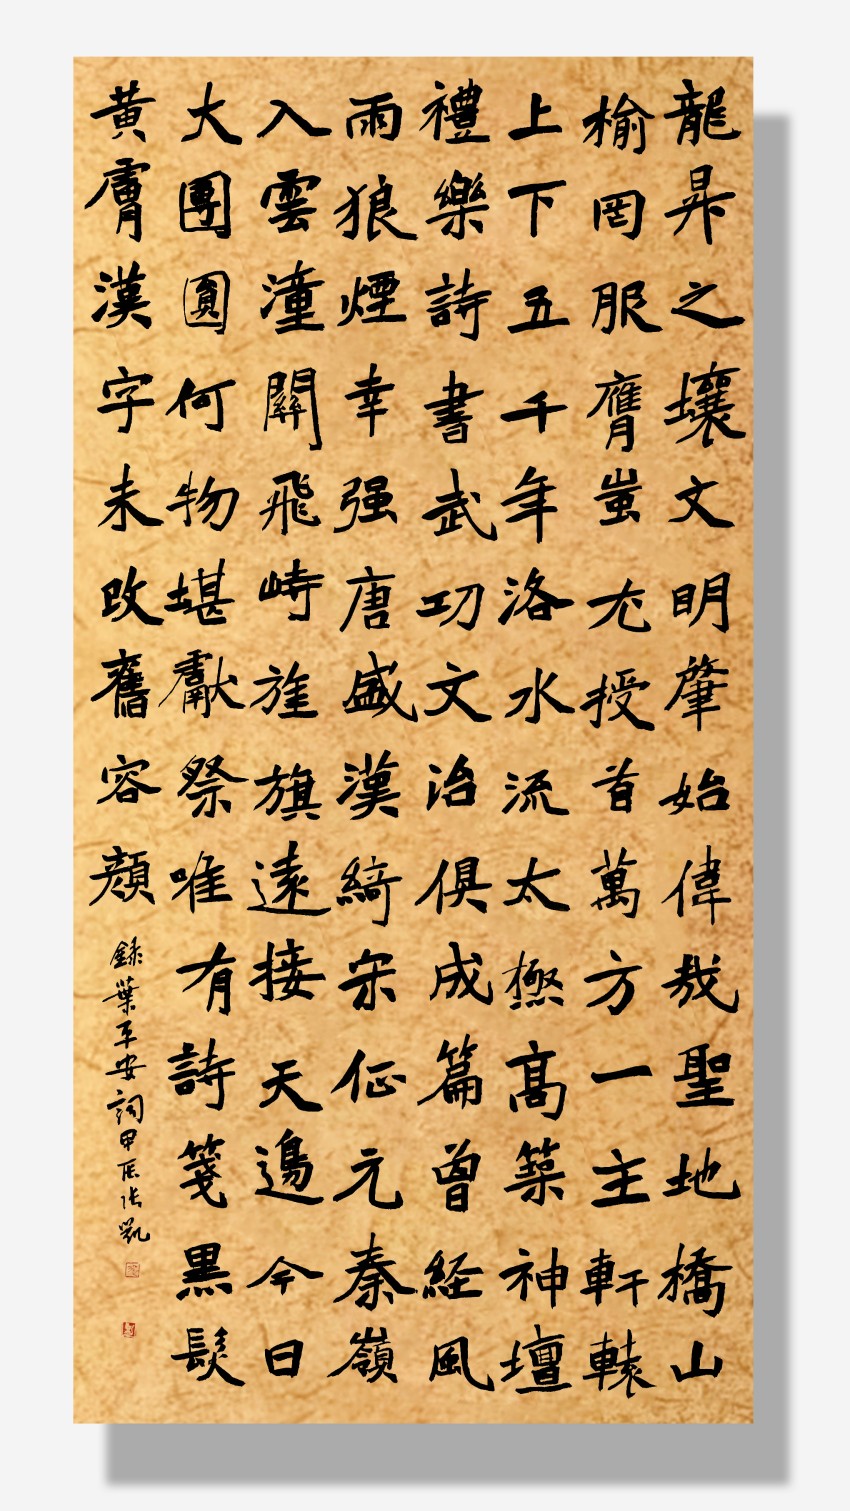 龍昇之壤文明肇始偉哉聖地橋山
榆罔服膺蚩尤授首萬方一主軒轅
上下五千年洛水流太極高築神壇
禮樂詩書武功文治俱成篇曾经風
雨狼煙幸强唐盛漢綺宋征元秦嶺
入雲潼關飛峙旌旗遠接天邊今日
大團圓何物堪獻祭唯有詩箋黑髮
黃膚漢字未改舊容顏
録葉平安詞甲辰张凱